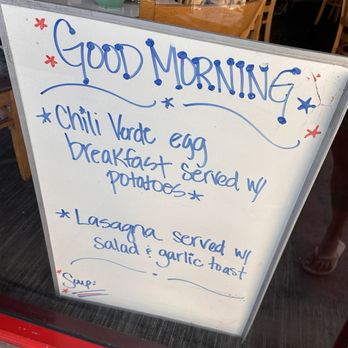 GOOD MORNING
* Chili Verde egg
breakfast served w/
potatoes *
* Lasagna served w/
salad & garlic toast
Soup: